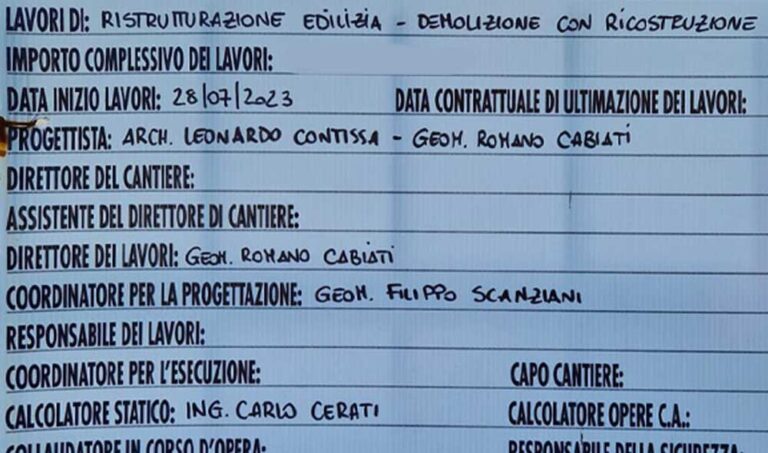 LAVORI DI: RISTRUTTURAZIONE EDILIZIA - DEMOLIZIONE CON RICOSTRUZIONE
IMPORTO COMPLESSIVO DEI LAVORI:
DATA INIZIO LAVORI: 28/07/2023 DATA CONTRATTUALE DI ULTIMAZIONE DEI LAVORI:
PROGETTISTA: ARCH. LEONARDO CONTISSA - GEOM. ROMANO CABIATI
DIRETTORE DEL CANTIERE:
ASSISTENTE DEL DIRETTORE DI CANTIERE:
DIRETTORE DEI LAVORI: GEOM. ROMANO CABIATI
COORDINATORE PER LA PROGETTAZIONE: GEOM. FILIPPO SCANZIANI
RESPONSABILE DEI LAVORI:
COORDINATORE PER L'ESECUZIONE: CAPO CANTIERE:
CALCOLATORE STATICO: ING. CARLO CERATI CALCOLATORE OPERE C.A.:
COLLAUDATORE IN CORSO D'OPERA: RESPONSABILE DELLA SICUREZZA: